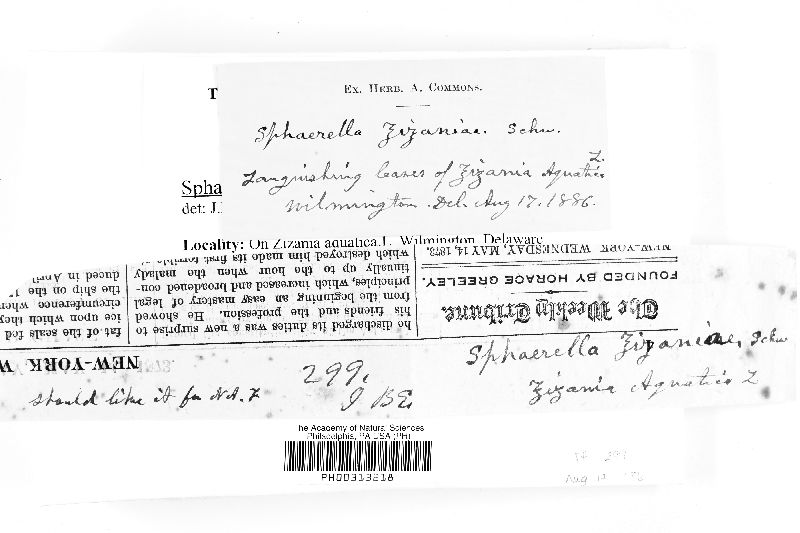 T
Ex. Herb. A. Commons.
Sphaerella Zizaniae. Schw.
Languishing leaves of Zizania Aquatica L.
Wilmington. Del. Aug 17. 1886.
Spha
det: J.
Locality: On Zizania aquatica L. Wilmington, Delaware
NEW-YORK, WEDNESDAY, MAY 14, 1873.
FOUNDED BY HORACE GREELEY.
The Weekly Tribune.
he discharged its duties was a new surprise to
his friends and the profession. He showed
from the beginning an easy mastery of legal
principles, which increased and broadened con-
tinually up to the hour when the malady
which destroyed him made its first terrible
fat of the seals fed
ice upon which they
circumference when
the ship on the
duced in April
NEW-YORK W
Sphaerella Zizaniae, Schw
Zizania Aquatica L
299.
J BE.
Should like it for N.A.F
The Academy of Natural Sciences
Philadelphia, PA USA (PH)
PH00313218